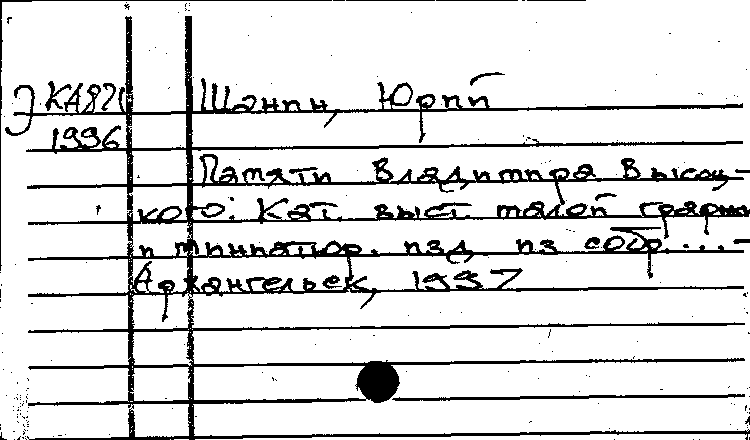 Э КА871 Шанин, Юрий
1996
Памяти Владимира Высоц-
кого: Кат. выст. малой графики
и миниатюр. изд. из собр. ... -
Архангельск, 1997